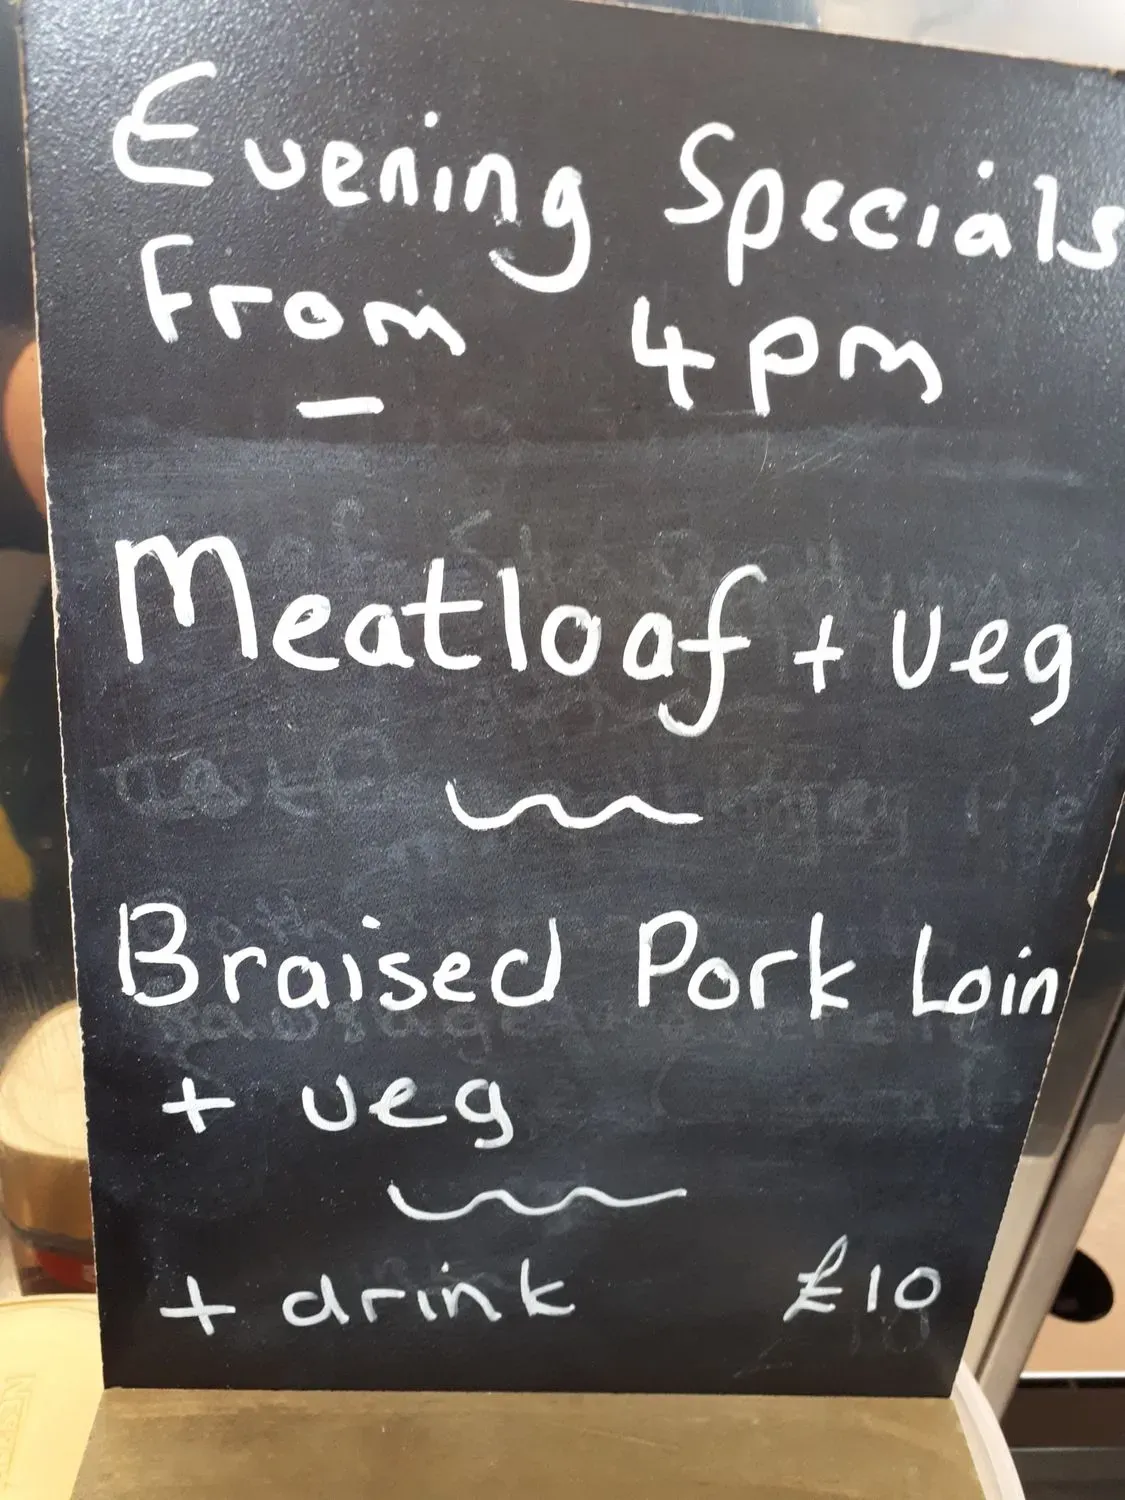 Evening Specials
From 4pm
Meatloaf + veg
Braised Pork Loin
+ veg
+ drink £10